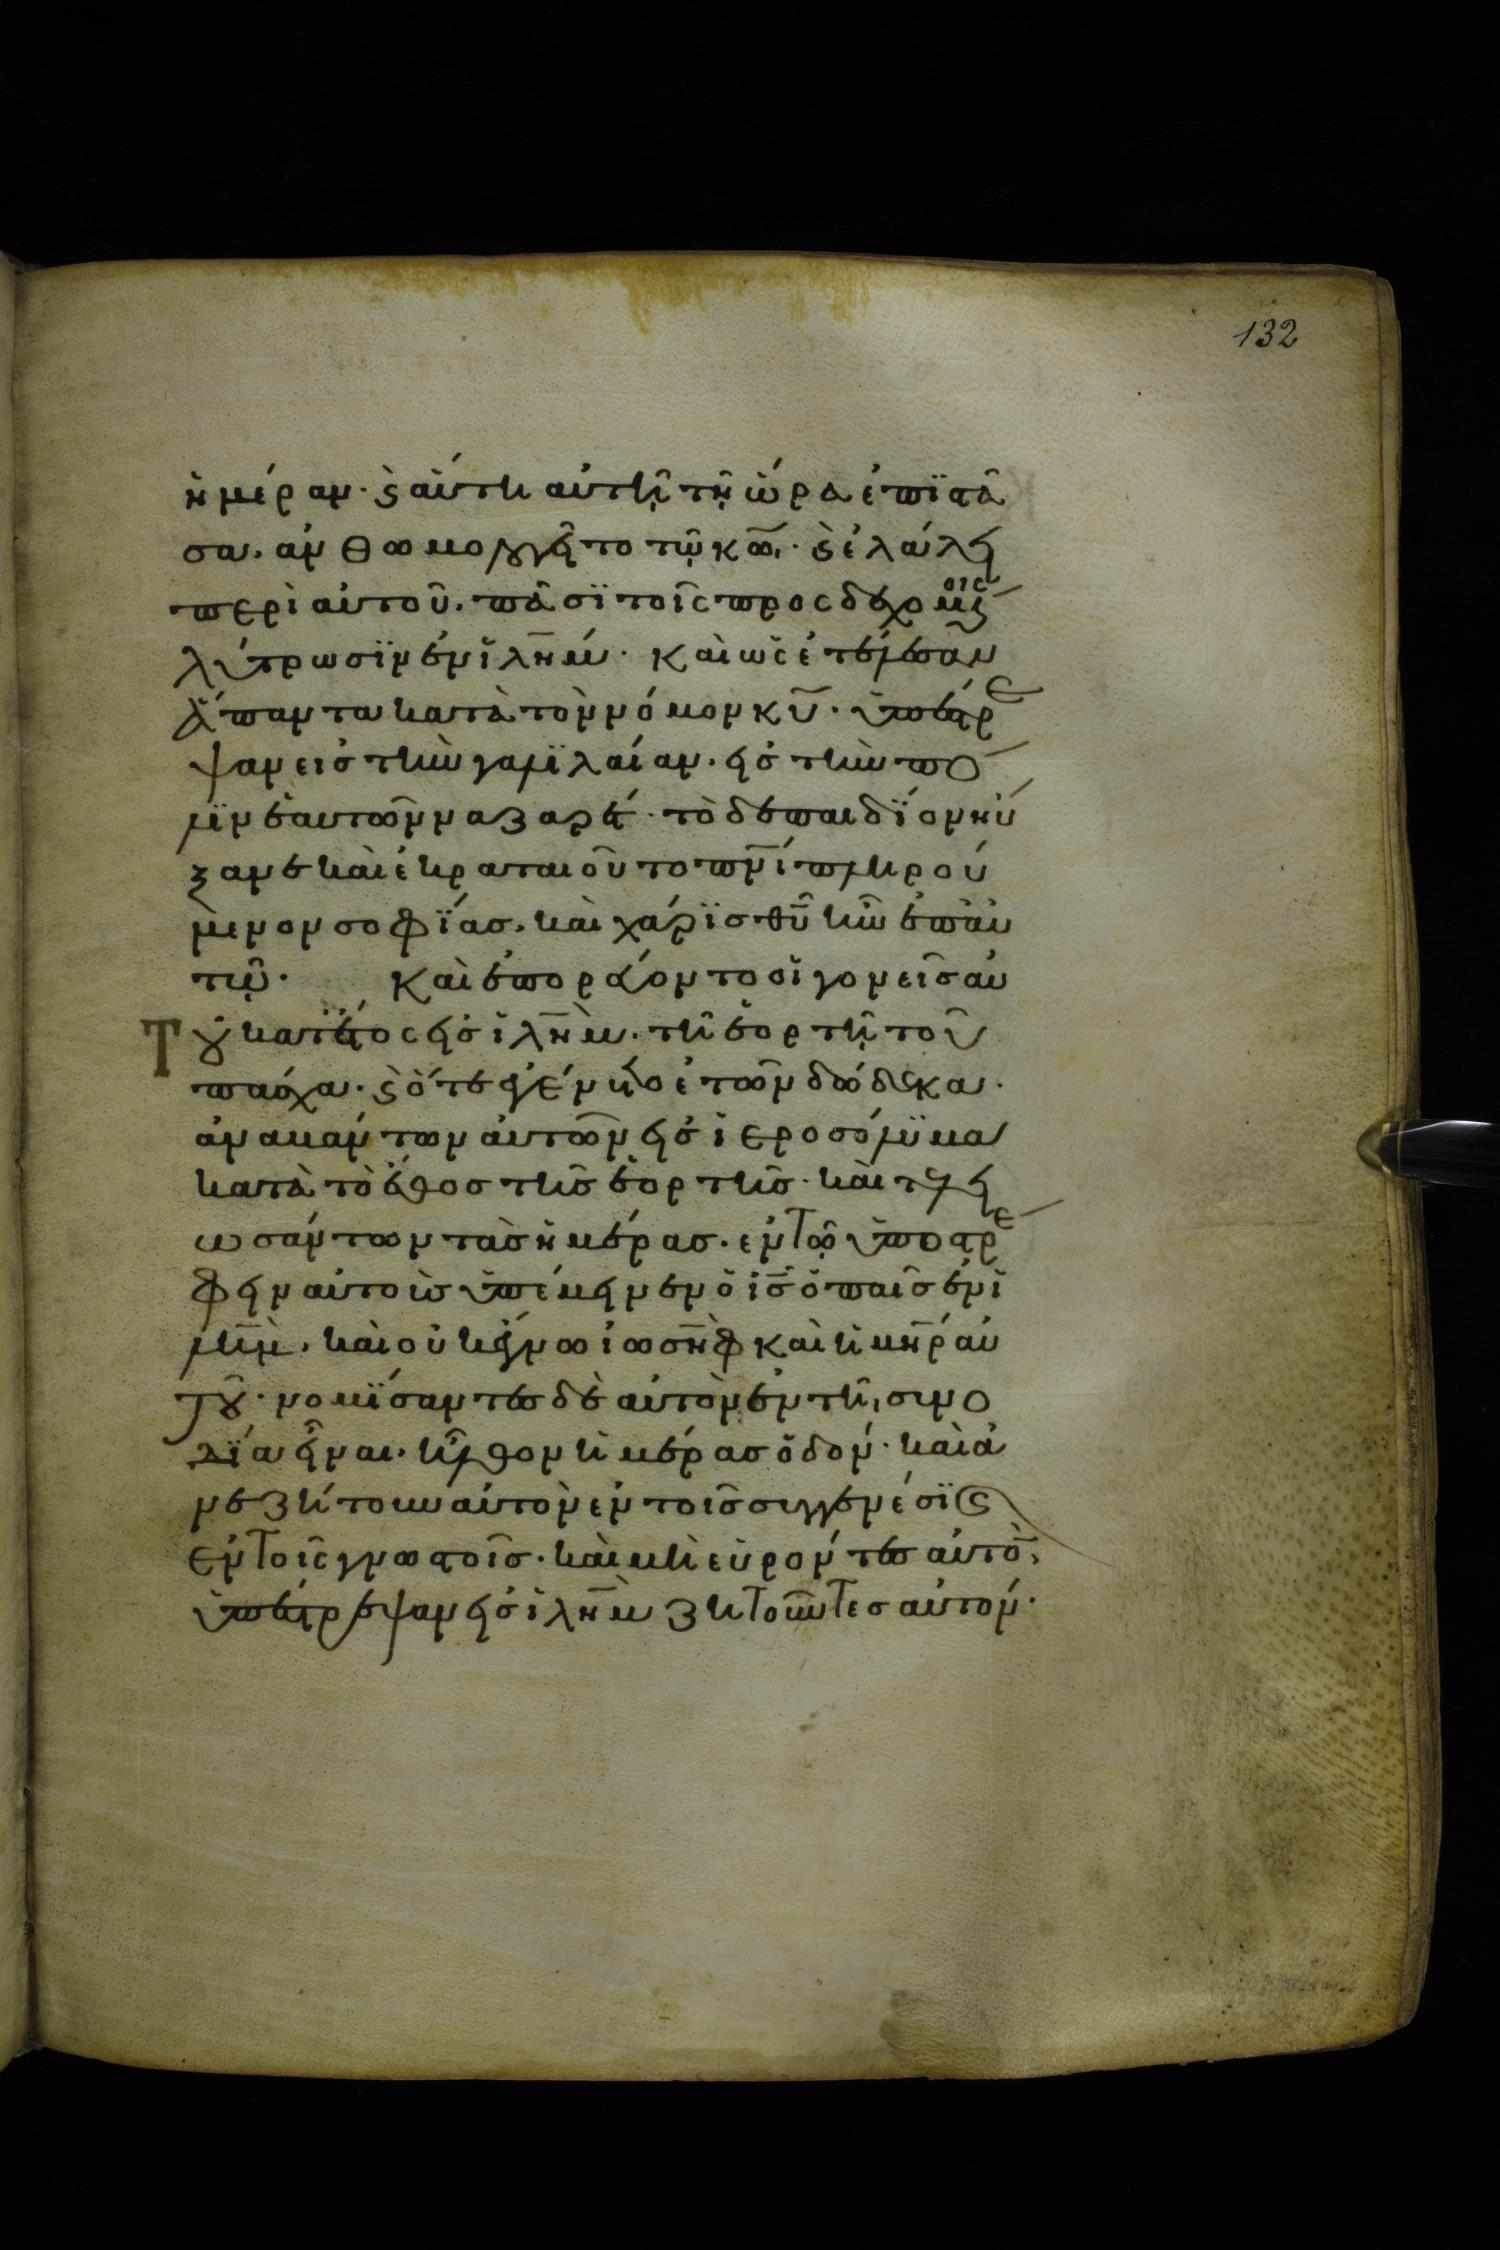 132
ἡμέραν· ϗ αὕτη αὐτῆ τῆ ὥρα ἐπιστᾶ
σα, ἀνθωμολογεῖτο τῶ κω̅· ϗ ἐλάλει
περὶ αὐτοῦ, πᾶσϊ τοῖς προσδεχομένοις
λύτρωσϊν ἐν ϊλη̅μ· καὶ ὡς ἐτέλεσαν
ἅπαντα κατὰ τὸν νόμον κυ̅· ὑπέστρε
ψαν εἰς τὴν γαλϊλαίαν· εἰς τὴν πό
λϊν ἑαυτῶν ναζαρέτ· τὸ δὲ παιδΐον ηὔ
ξανε καὶ ἐκραταιοῦτο πνι̅ πληρού
μενον σοφΐας, καὶ χάρϊς θυ̅ ἦν ἐπ' αὐ
τῶ· Καὶ ἐπορεύοντο οἱ γονεῖς αὐ
Τοῦ κατ' ἔτος εἰς ϊλη̅μ· τῆ ἑορτῆ τοῦ
πάσχα· ϗ ὅτε ἐγένετο ἐτῶν δώδεκα·
ἀναβάντων αὐτῶν εἰς ἱεροσόλϋμα
κατὰ τὸ ἔθος τῆς ἑορτῆς· καὶ τελει
ωσάντων τὰς ἡμέρας· ἐν τῶ ὑποστρέ
φειν αὐτοὺς ὑπέμεινεν ὁ ις̅ ὁ παῖς ἐν ϊ
λη̅μ, καὶ οὐκ ἔγνω ἰωσὴφ καὶ ἡ μη̅ρ αὐ
τοῦ· νομΐσαντες δὲ αὐτὸν ἐν τῆ συνο
δΐα εἶναι, ἦλθον ἡμέρας ὁδόν· καὶ ἀ
νεζήτουν αὐτὸν ἐν τοῖς συγγενέσϊ ϗ
ἐν τοῖς γνωστοῖς· καὶ μὴ εὑρόντες αὐτὸν,
ὑπέστρεψαν εἰς ϊλη̅μ ζητοῦντες αὐτόν·